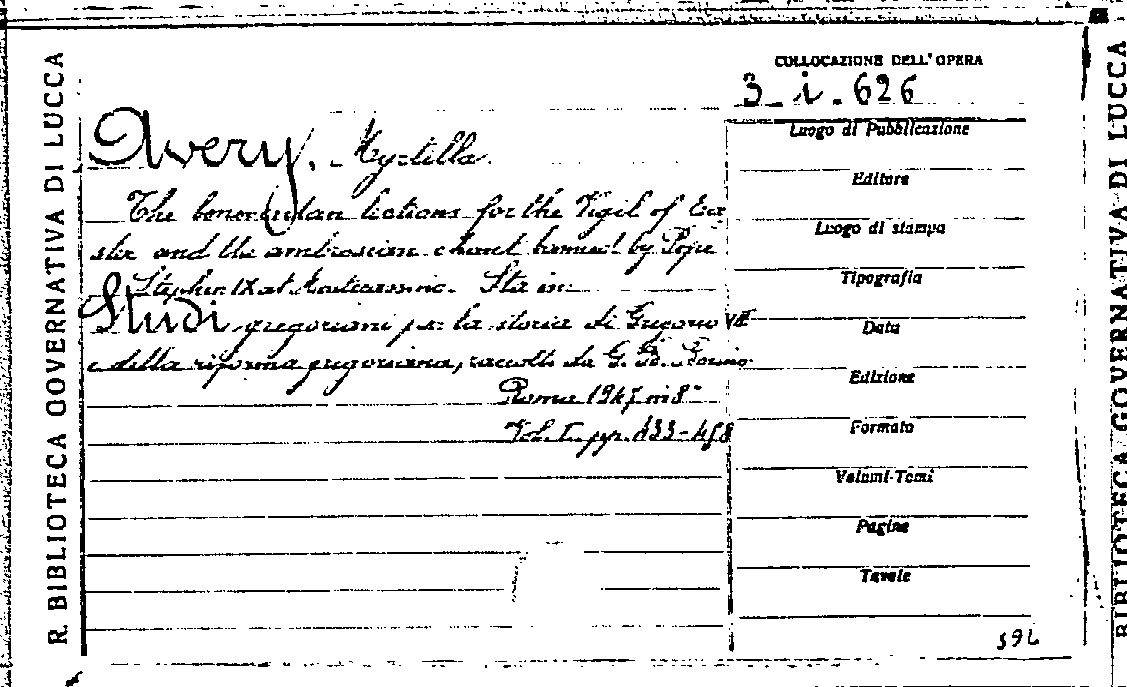 R. BIBLIOTECA GOVERNATIVA DI LUCCA
COLLOCAZIONE DELL'OPERA
3. i. 626
Avery, Myrtilla.
The beneventan lections for the Vigil of Ea
ster and the ambrosian chant banned by Pope
Stephen IX at Montecassino. Sta in:
Studi gregoriani per la storia di Gregorio VII
e della riforma gregoriana, raccolti da G. B. Borino
Roma 1947 in 8°
Vol. I. pp. 433-458
Luogo di Pubblicazione
Editore
Luogo di stampa
Tipografia
Data
Edizione
Formato
Volumi-Tomi
Pagine
Tavole
BIBLIOTECA GOVERNATIVA DI LUCCA